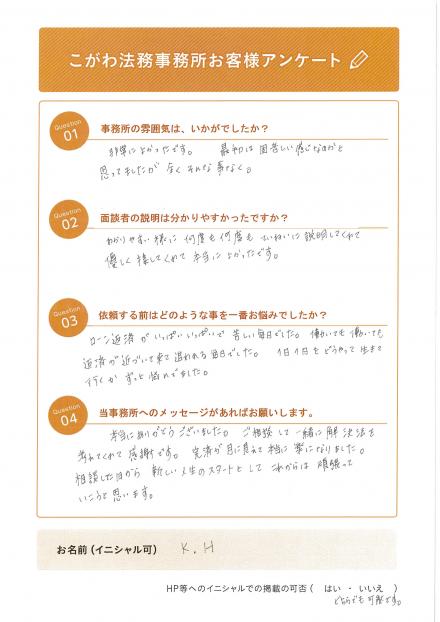 こがわ法務事務所お客様アンケート
Question
01
事務所の雰囲気は、いかがでしたか？
非常によかったです。 最初は固苦しい感じなのかと
思ってましたが 全くそんな事なく。
Question
02
面談者の説明は分かりやすかったですか？
わかりやすい様に 何度も何度も ていねいに説明してくれて
優しく接してくれて 本当によかったです。
Question
03
依頼する前はどのような事を一番お悩みでしたか？
ローン返済がいっぱいいっぱいで 苦しい毎日でした。 働いても働いても
返済が近づいて来て追われる毎日でした。 1日1日をどうやって生きて
行くか ずっと悩んでました。
Question
04
当事務所へのメッセージがあればお願いします。
本当にありがとうございました。 ご相談して一緒に解決法を
考れてくれて感謝です。 完済が目に見えて本当に楽になりました。
相談した日から 新しい人生のスタートとして これからは頑張って
いこうと思います。
お名前（イニシャル可） K.H
HP等へのイニシャルでの掲載の可否（ はい ・ いいえ ）
どちらでも可能です。